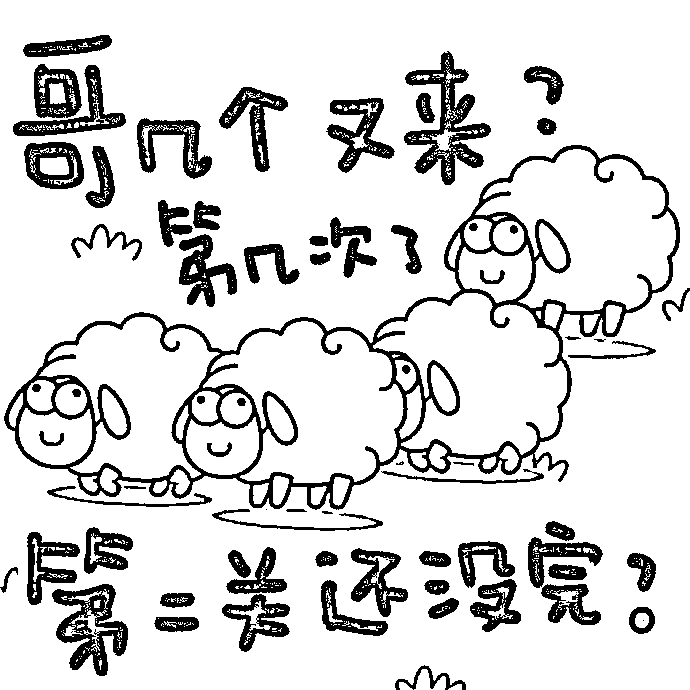 哥几个又来？
第几次了
第二关还没完？